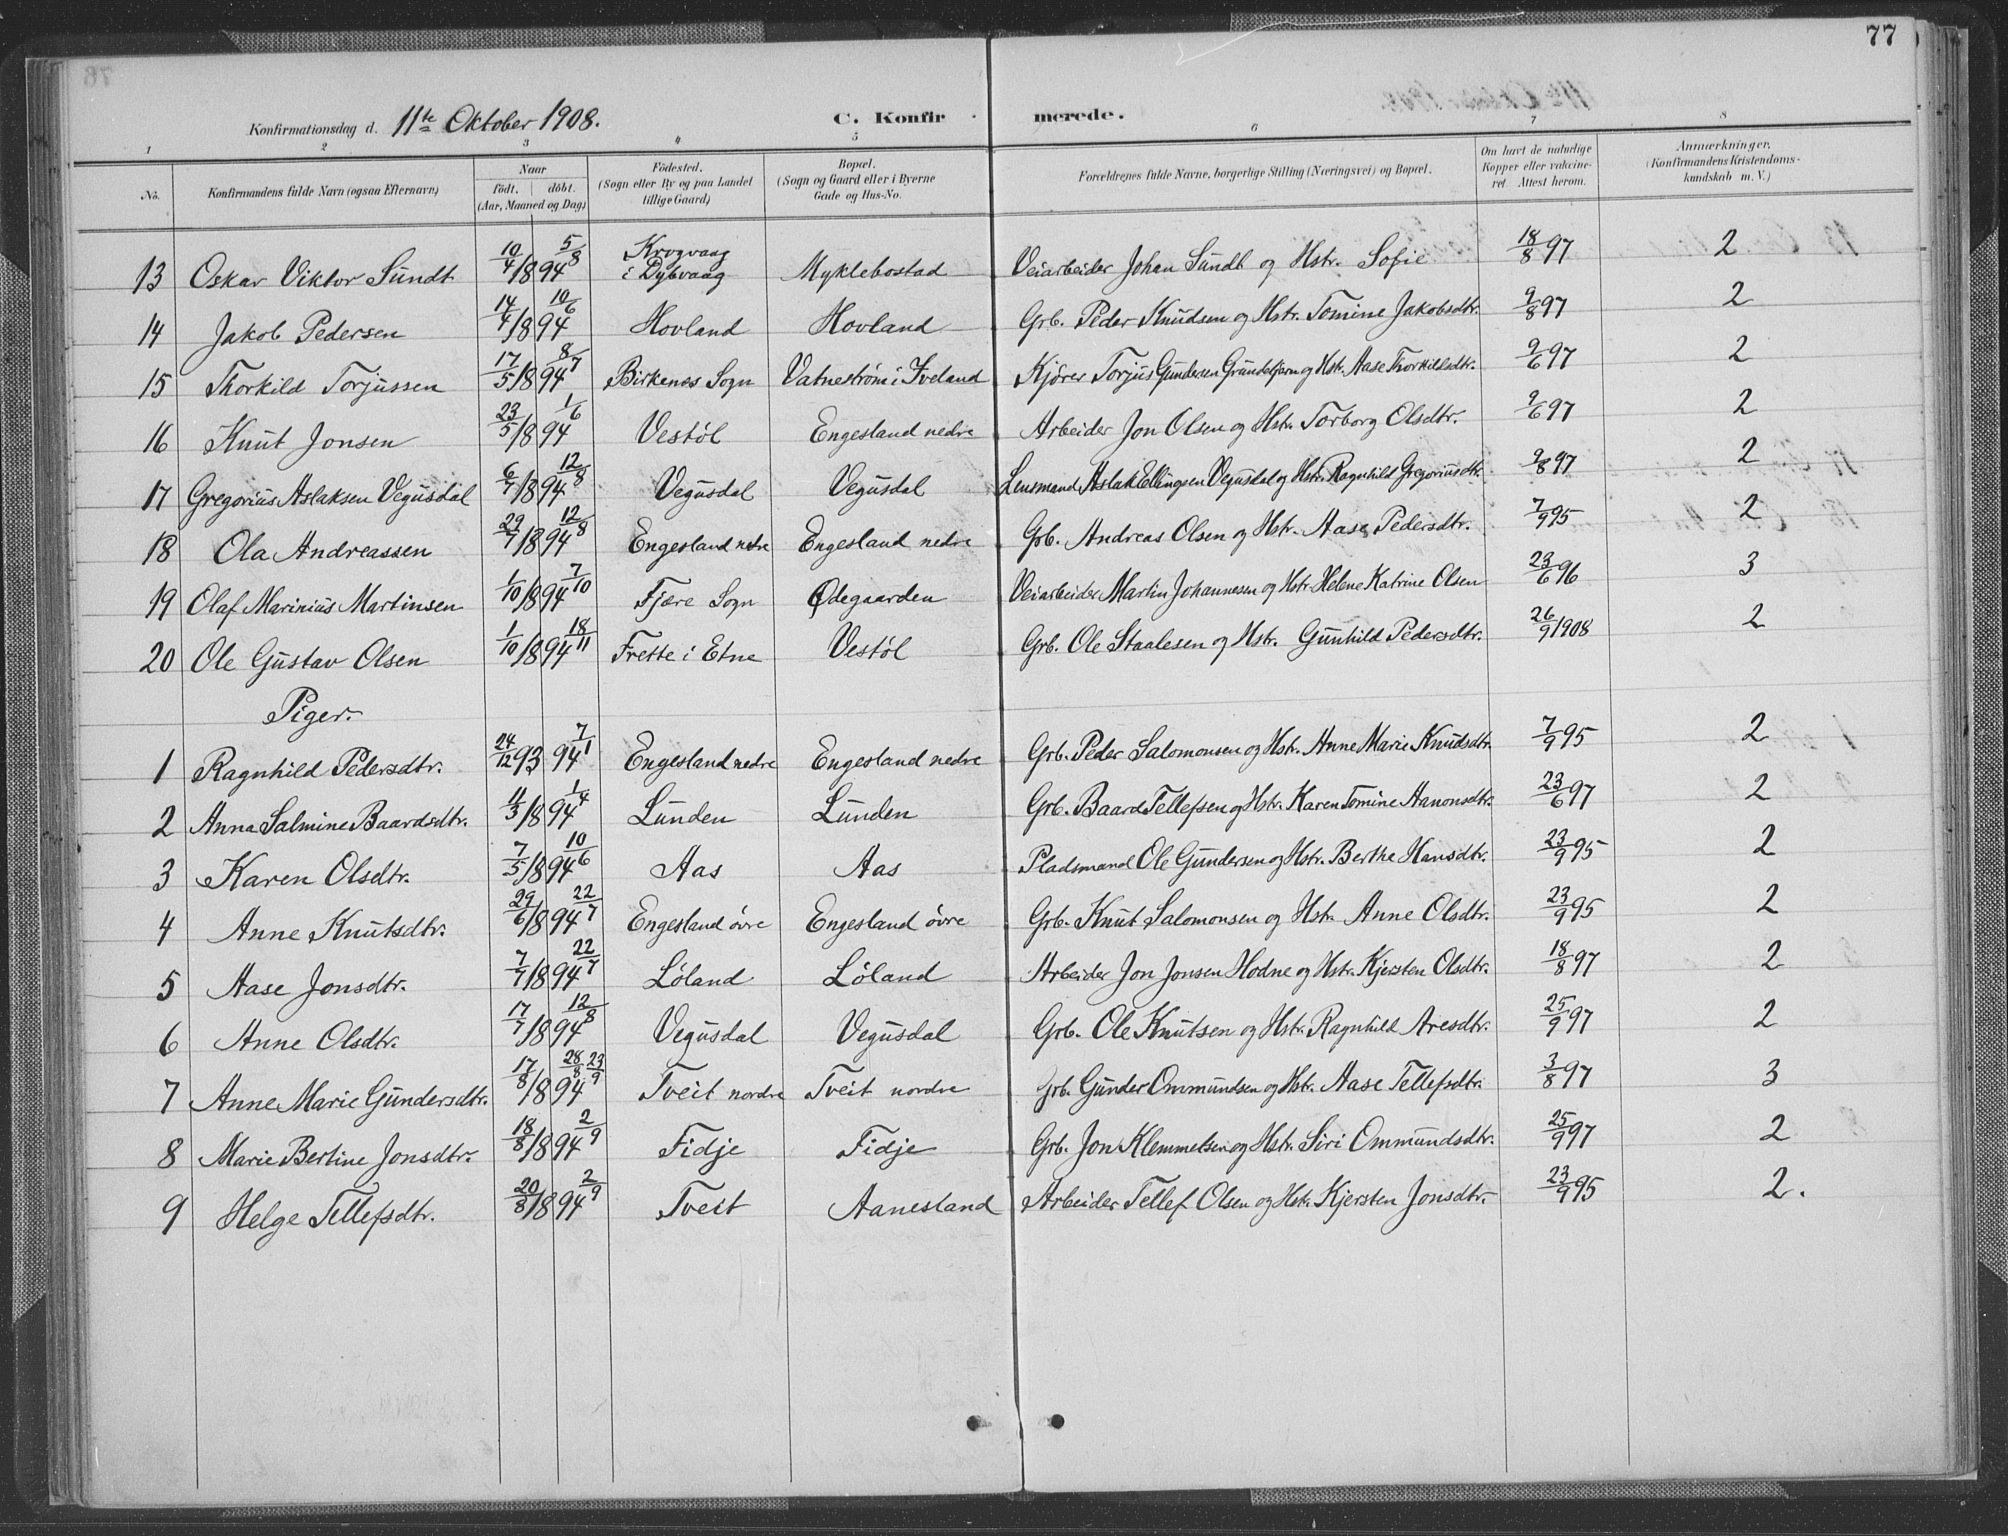 77
Konfirmationsdag d. 11te Oktober 1908. C. Konfirmerede.
1 2 3 4 5 6 7 8
No. Konfirmandens fulde Navn (ogsaa Efternavn) Naar født, døbt. (Aar, Maaned og Dag) Fødested. (Sogn eller By og paa Landet tillige Gaard) Bopæl. (Sogn og Gaard eller i Byerne Gade og Hus-No. Forældrenes fulde Navne, borgerlige Stilling (Næringsvei) og Bopæl. Om havt de naturlige Kopper eller vakcineret. Attest herom. Anmærkninger. (Konfirmandens Kristendomskundskab m. V.)
13 Oskar Viktor Sundt 10/4 1894 5/8 Krogvaag i Dybvaag Myklebostad Veiarbeider Johan Sundt og Hstr. Sofie 18/8 97 2
14 Jakob Pedersen 14/4 1894 10/6 Hovland Hovland Grb. Peder Knudsen og Hstr. Tomine Jakobsdtr. 9/8 97 2
15 Thorkild Torjussen 17/5 1894 8/7 Birkenes Sogn Vatnestrøm i Iveland Kjører Torjus Gundersen Grundetjern og Hstr. Aase Thorkildsdtr. 9/6 97 2
16 Knut Jonsen 23/5 1894 1/6 Vestøl Engesland nedre Arbeider Jon Olsen og Hstr. Torborg Olsdtr. 9/6 97 2
17 Gregorius Aslaksen Vegusdal 6/7 1894 12/8 Vegusdal Vegusdal Lensmand Aslak Ellingsen Vegusdal og Hstr. Ragnhild Gregoriusdtr. 9/8 97 2
18 Ola Andreassen 29/7 1894 12/8 Engesland nedre Engesland nedre Grb. Andreas Olsen og Hstr. Aase Pedersdtr. 7/9 95 2
19 Olaf Marinius Martinsen 1/10 1894 7/10 Fjære Sogn Ødegaarden Veiarbeider Martin Johannesen og Hstr. Helene Katrine Olsen 23/6 96 3
20 Ole Gustav Olsen 1/10 1894 18/11 Frette i Etne Vestøl Grb. Ole Staalesen og Hstr. Gunhild Pedersdtr. 26/9 1908 2
Piger.
1 Ragnhild Pedersdtr. 24/12 93 94 7/1 Engesland nedre Engesland nedre Grb. Peder Salomonsen og Hstr. Anne Marie Knudsdtr. 7/9 95 2
2 Anna Salmine Baardsdtr. 11/3 1894 1/4 Lunden Lunden Grb. Baard Tellefsen og Hstr. Karen Tomine Aanonsdtr. 23/6 97 2
3 Karen Olsdtr. 7/5 1894 10/6 Aas Aas Pladsmand Ole Gundersen og Hstr. Berthe Hansdtr. 23/9 95 2
4 Anne Knutsdtr. 29/6 1894 22/7 Engesland øvre Engesland øvre Grb. Knut Salomonsen og Hstr. Anne Olsdtr. 23/9 95 2
5 Aase Jonsdtr. 7/7 1894 22/7 Løland Løland Arbeider Jon Jonsen Hodne og Hstr. Kjersten Olsdtr. 18/8 97 2
6 Anne Olsdtr. 17/7 1894 12/8 Vegusdal Vegusdal Grb. Ole Knutsen og Hstr. Ragnhild Aresdtr. 25/9 97 2
7 Anne Marie Gundersdtr. 17/8 1894 28/8 23/9 Tveit nordre Tveit nordre Grb. Gunder Ommundsen og Hstr. Aase Tellefsdtr. 3/8 97 3
8 Marie Bertine Jonsdtr. 18/8 1894 2/9 Fidje Fidje Grb. Jon Klemmetsen og Hstr. Siri Ommundsdtr. 25/9 97 2
9 Helge Tellefsdtr. 20/8 1894 2/9 Tveit Aanesland Arbeider Tellef Olsen og Hstr. Kjersten Jonsdtr. 23/9 95 2.